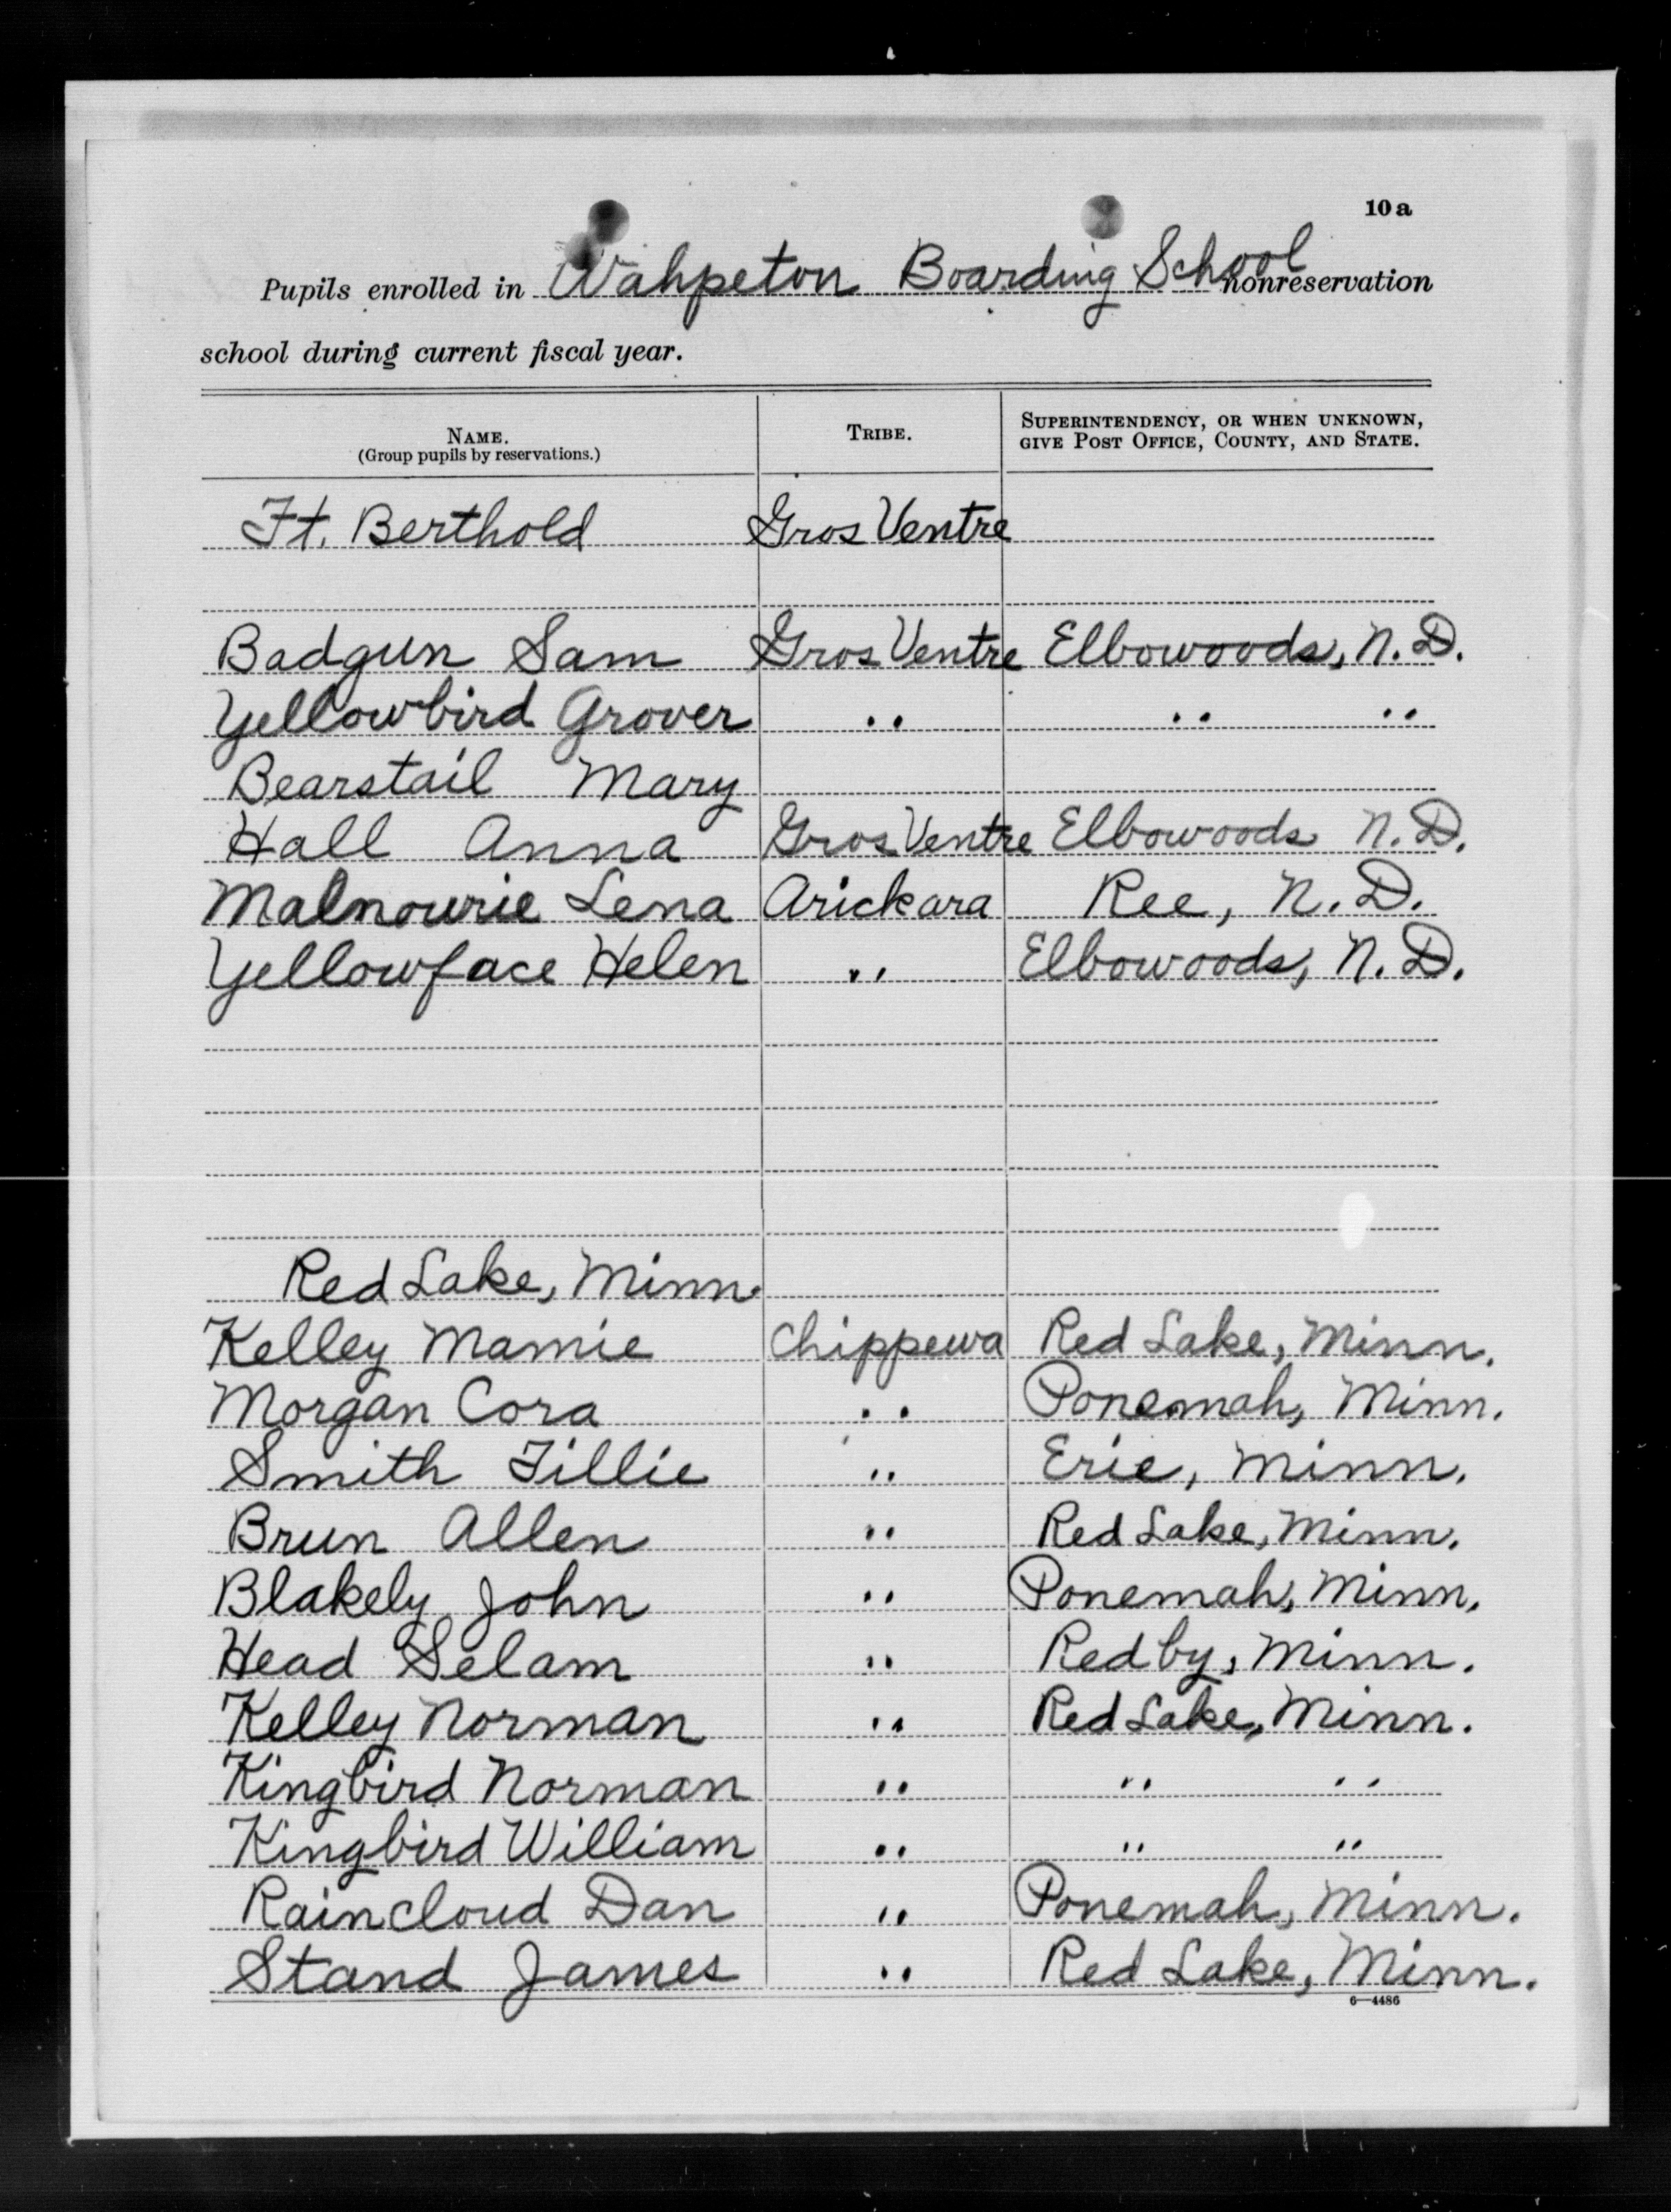 10 a
Pupils enrolled in Wahpeton Boarding School nonreservation
school during current fiscal year.
NAME. TRIBE. SUPERINTENDENCY, OR WHEN UNKNOWN,
(Group pupils by reservations.) GIVE POST OFFICE, COUNTY, AND STATE.
Ft. Berthold Gros Ventre
Badgun Sam Gros Ventre Elbowoods, N.D.
Yellowbird Grover " " "
Bearstail Mary
Hall Anna Gros Ventre Elbowoods N.D.
Malnourie Lena Arickara Ree, N.D.
Yellowface Helen " Elbowoods, N.D.
Red Lake, Minn.
Kelley Mamie Chippewa Red Lake, Minn.
Morgan Cora " Ponemah, Minn.
Smith Tillie " Erie, Minn.
Brun Allen " Red Lake, Minn.
Blakely John " Ponemah, Minn.
Head Selam " Redby, Minn.
Kelley Norman " Red Lake, Minn.
Kingbird Norman " " "
Kingbird William " " "
Raincloud Dan " Ponemah, Minn.
Stand James " Red Lake, Minn.
6—4486